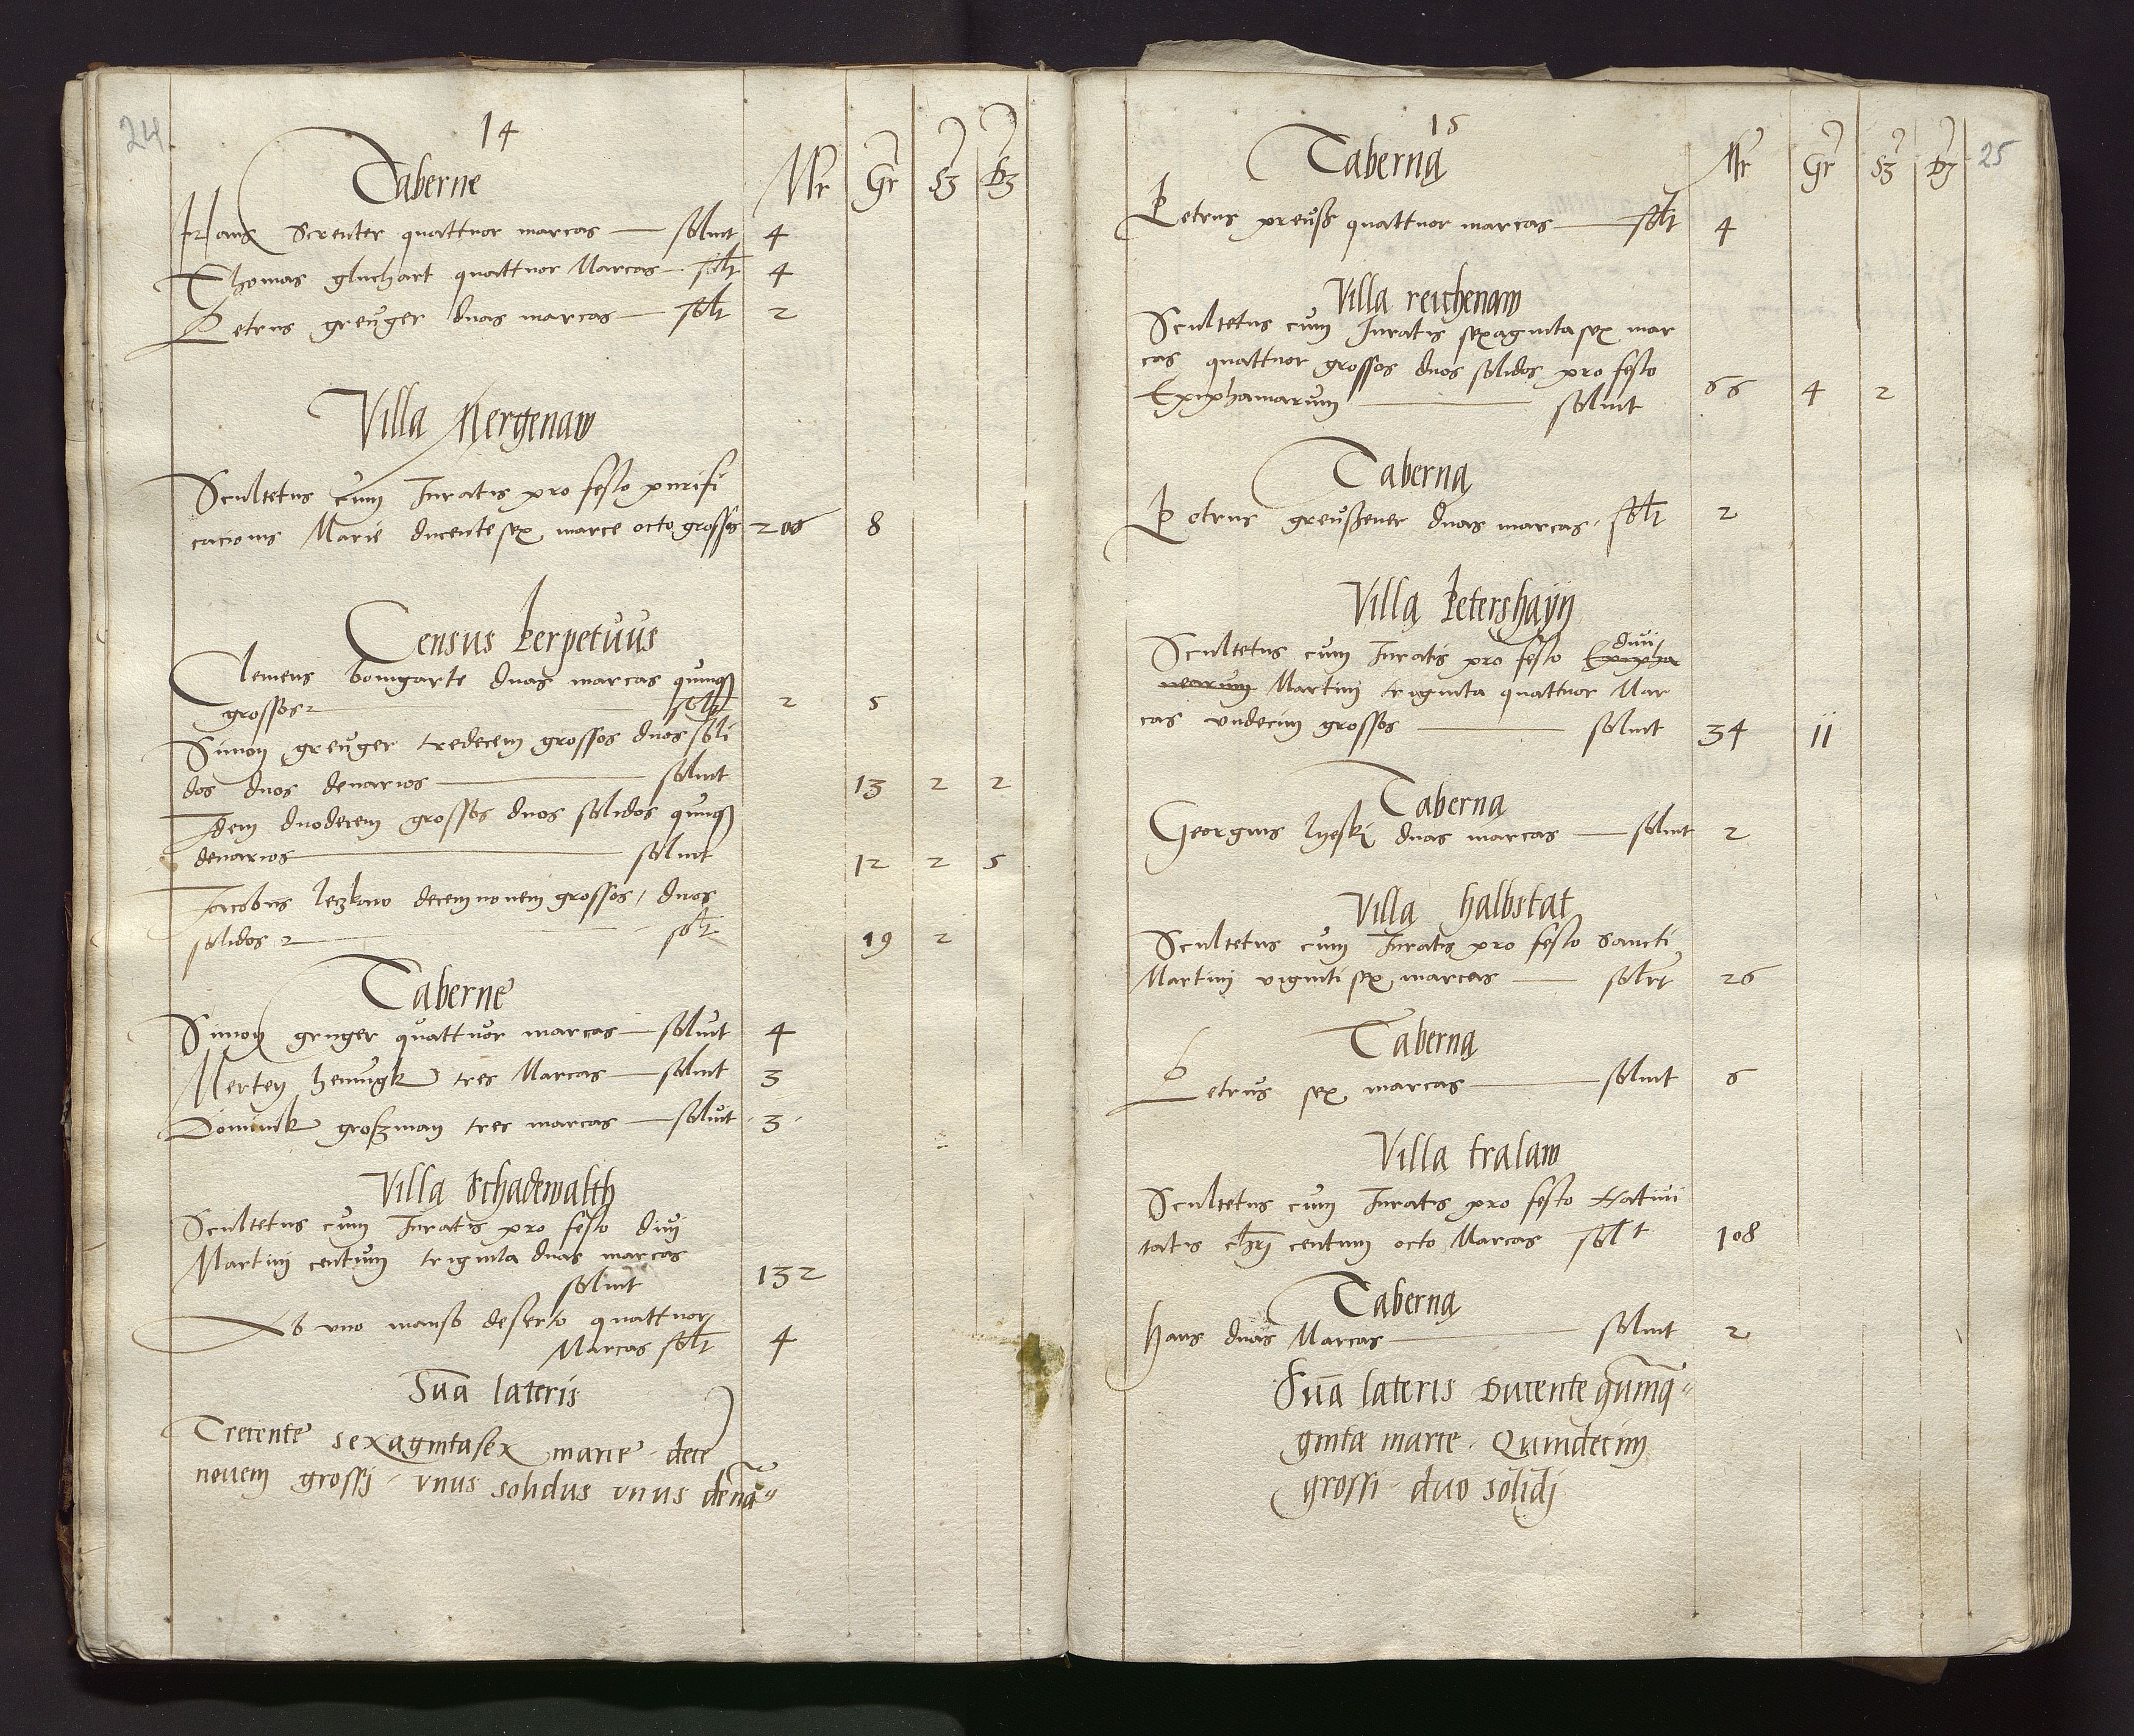 24
14
Taberne
Mr Gr Sz Dz
Hans Screuter quattuor marcas — soluit 4
Thomas gluchart quattuor Marcas - solt 4
Petrus greuger duas marcas — solt 2
Villa Mergenaw
Scultetus cum Iuratis pro festo purifi
cacionis Marie ducente sex marce octo grossos 206 8
Census Perpetuus
Clemens bomgarte duas marcas quinq
grossos — solt 2 5
Simon greuger tredecem grossos duos soli
dos duos denarios — soluit 13 2 2
Idem duodecem grossos duos solidos quinq
denarios — soluit 12 2 5
Jacobus leczkaw decemnouem grossos, duos
solidos — solt 19 2
Taberne
Simon gruger quattuor marcas — soluit 4
Merten hennigk tres Marcas — soluit 3
Dominik groszman tres marcas — soluit 3
Villa Schadewalth
Scultetus cum Iuratis pro festo diui
Martini centum triginta duas marcas
soluit 132
Ab vno manso deserto quattuor
Marcas solt 4
Sua lateris
Trecente sexagintasex marce dece
nouem grossi - vnus solidus vnus dena
15
25
Taberna
Mr Gr Sz Dz
Petrus preuss quattuor marcas — solt 4
Villa reichenaw
Scultetus cum Iuratis sexaginta sex mar
cas quattuor grossos duos solidos pro festo
Epiphaniarum — soluit 66 4 2
Taberna
Petrus greuszener duas marcas - solt 2
Villa Petershayn
Scultetus cum Iuratis pro festo Epipha diui
nearum Martini triginta quattuor Mar
cas vndecim grossos — soluit 34 11
Taberna
Georgius lyeski duas marcas — soluit 2
Villa halbstat
Scultetus cum Iuratis pro festo sancti
Martini viginti sex marcas — soluit 26
Taberna
Petrus sex marcas — soluit 6
Villa tralaw
Scultetus cum Iuratis pro festo Natiui
tatis chri centum octo Marcas solt 108
Taberna
Hans duas Marcas — soluit 2
Sua lateris Ducente quinq
ginta marce - Quindecim
grossi - duo solidi